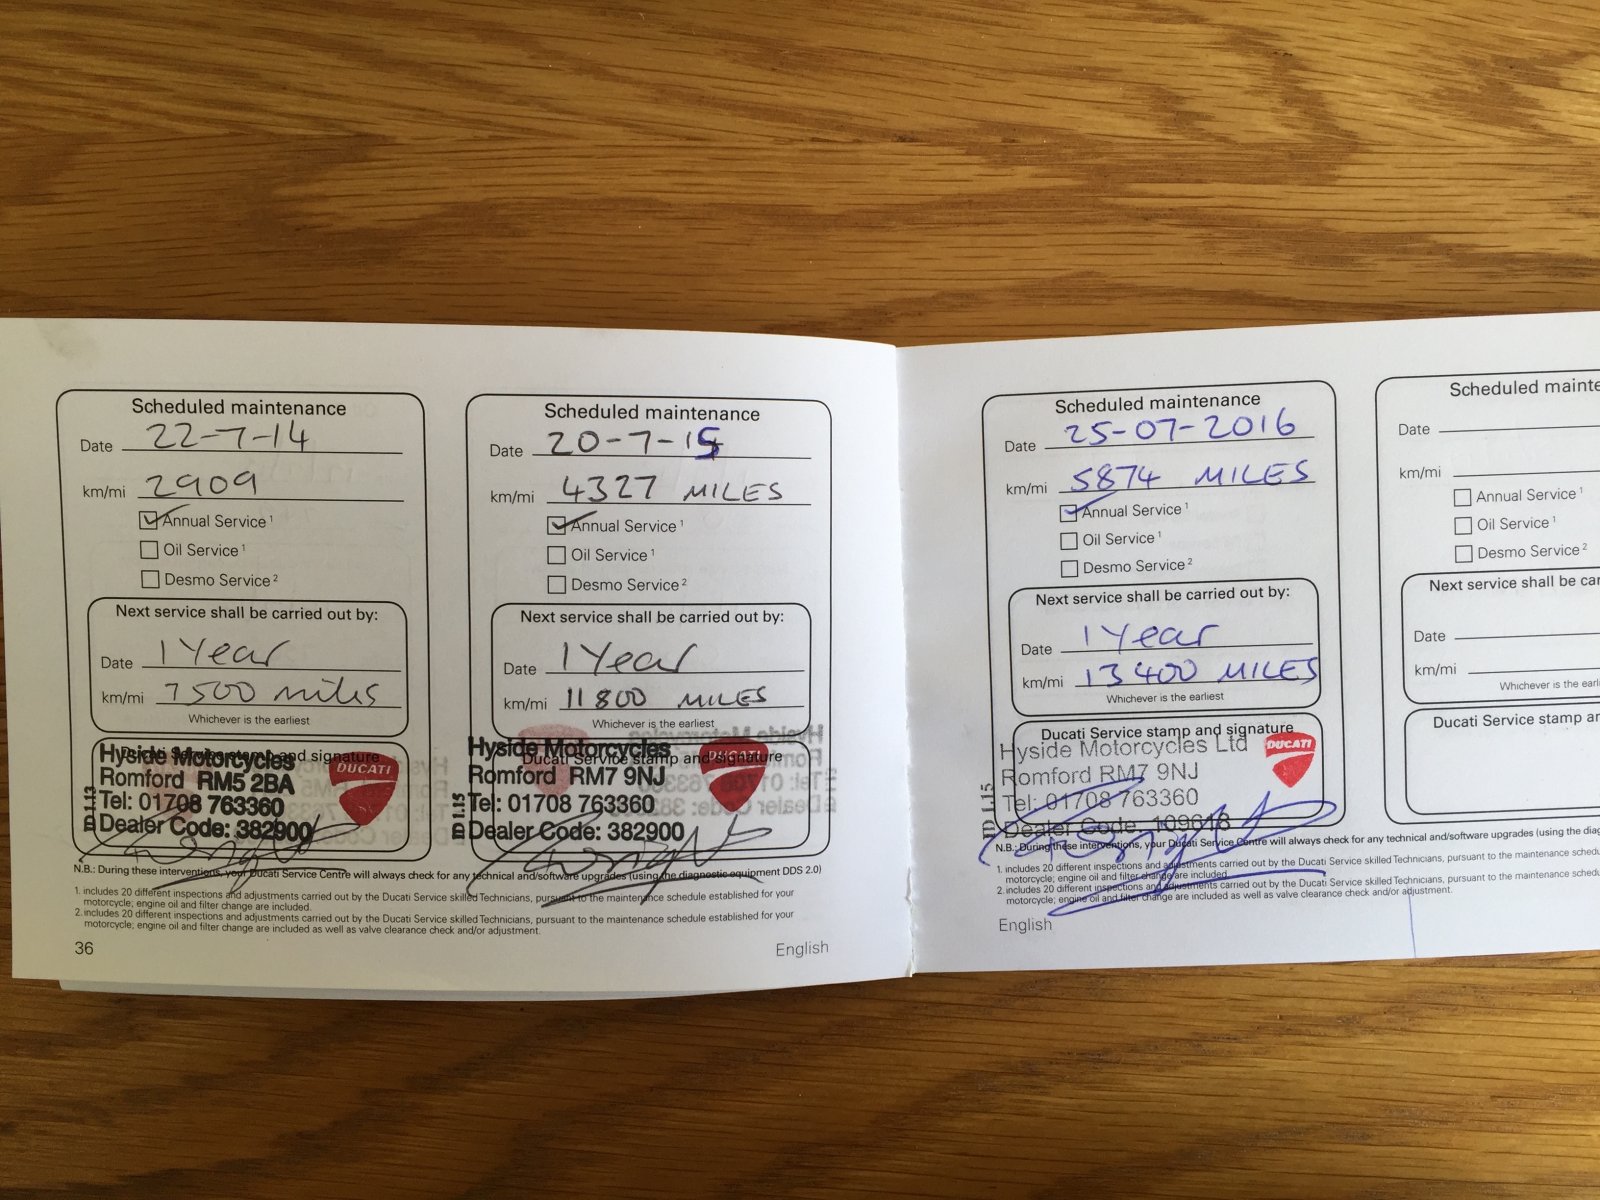 Scheduled maintenance
Date 22-7-14
km/mi 2909
Annual Service 1
Oil Service 1
Desmo Service 2
Next service shall be carried out by:
Date 1 Year
km/mi 7500 miles
Whichever is the earliest
Ducati Service stamp and signature
Hyside Motorcycles
Romford RM5 2BA
Tel: 01708 763360
Dealer Code: 382900
ID 1.13
DUCATI
Scheduled maintenance
Date 20-7-15
km/mi 4327 MILES
Annual Service 1
Oil Service 1
Desmo Service 2
Next service shall be carried out by:
Date 1 Year
km/mi 11800 MILES
Whichever is the earliest
Ducati Service stamp and signature
Hyside Motorcycles
Romford RM7 9NJ
Tel: 01708 763360
Dealer Code: 382900
ID 1.15
DUCATI
N.B.: During these interventions, your Ducati Service Centre will always check for any technical and/software upgrades (using the diagnostic equipment DDS 2.0)
1. includes 20 different inspections and adjustments carried out by the Ducati Service skilled Technicians, pursuant to the maintenance schedule established for your
motorcycle; engine oil and filter change are included.
2. includes 20 different inspections and adjustments carried out by the Ducati Service skilled Technicians, pursuant to the maintenance schedule established for your
motorcycle; engine oil and filter change are included as well as valve clearance check and/or adjustment.
36
English
Scheduled maintenance
Date 25-07-2016
km/mi 5874 MILES
Annual Service 1
Oil Service 1
Desmo Service 2
Next service shall be carried out by:
Date 1 Year
km/mi 13400 MILES
Whichever is the earliest
Ducati Service stamp and signature
Hyside Motorcycles Ltd
Romford RM7 9NJ
Tel: 01708 763360
Dealer Code 109618
ID 1.15
DUCATI
Scheduled mainte
Date
km/mi
Annual Service 1
Oil Service 1
Desmo Service 2
Next service shall be car
Date
km/mi
Whichever is the earl
Ducati Service stamp an
N.B.: During these interventions, your Ducati Service Centre will always check for any technical and/software upgrades (using the diag
1. includes 20 different inspections and adjustments carried out by the Ducati Service skilled Technicians, pursuant to the maintenance schedu
motorcycle; engine oil and filter change are included.
2. includes 20 different inspections and adjustments carried out by the Ducati Service skilled Technicians, pursuant to the maintenance schedu
motorcycle; engine oil and filter change are included as well as valve clearance check and/or adjustment.
English